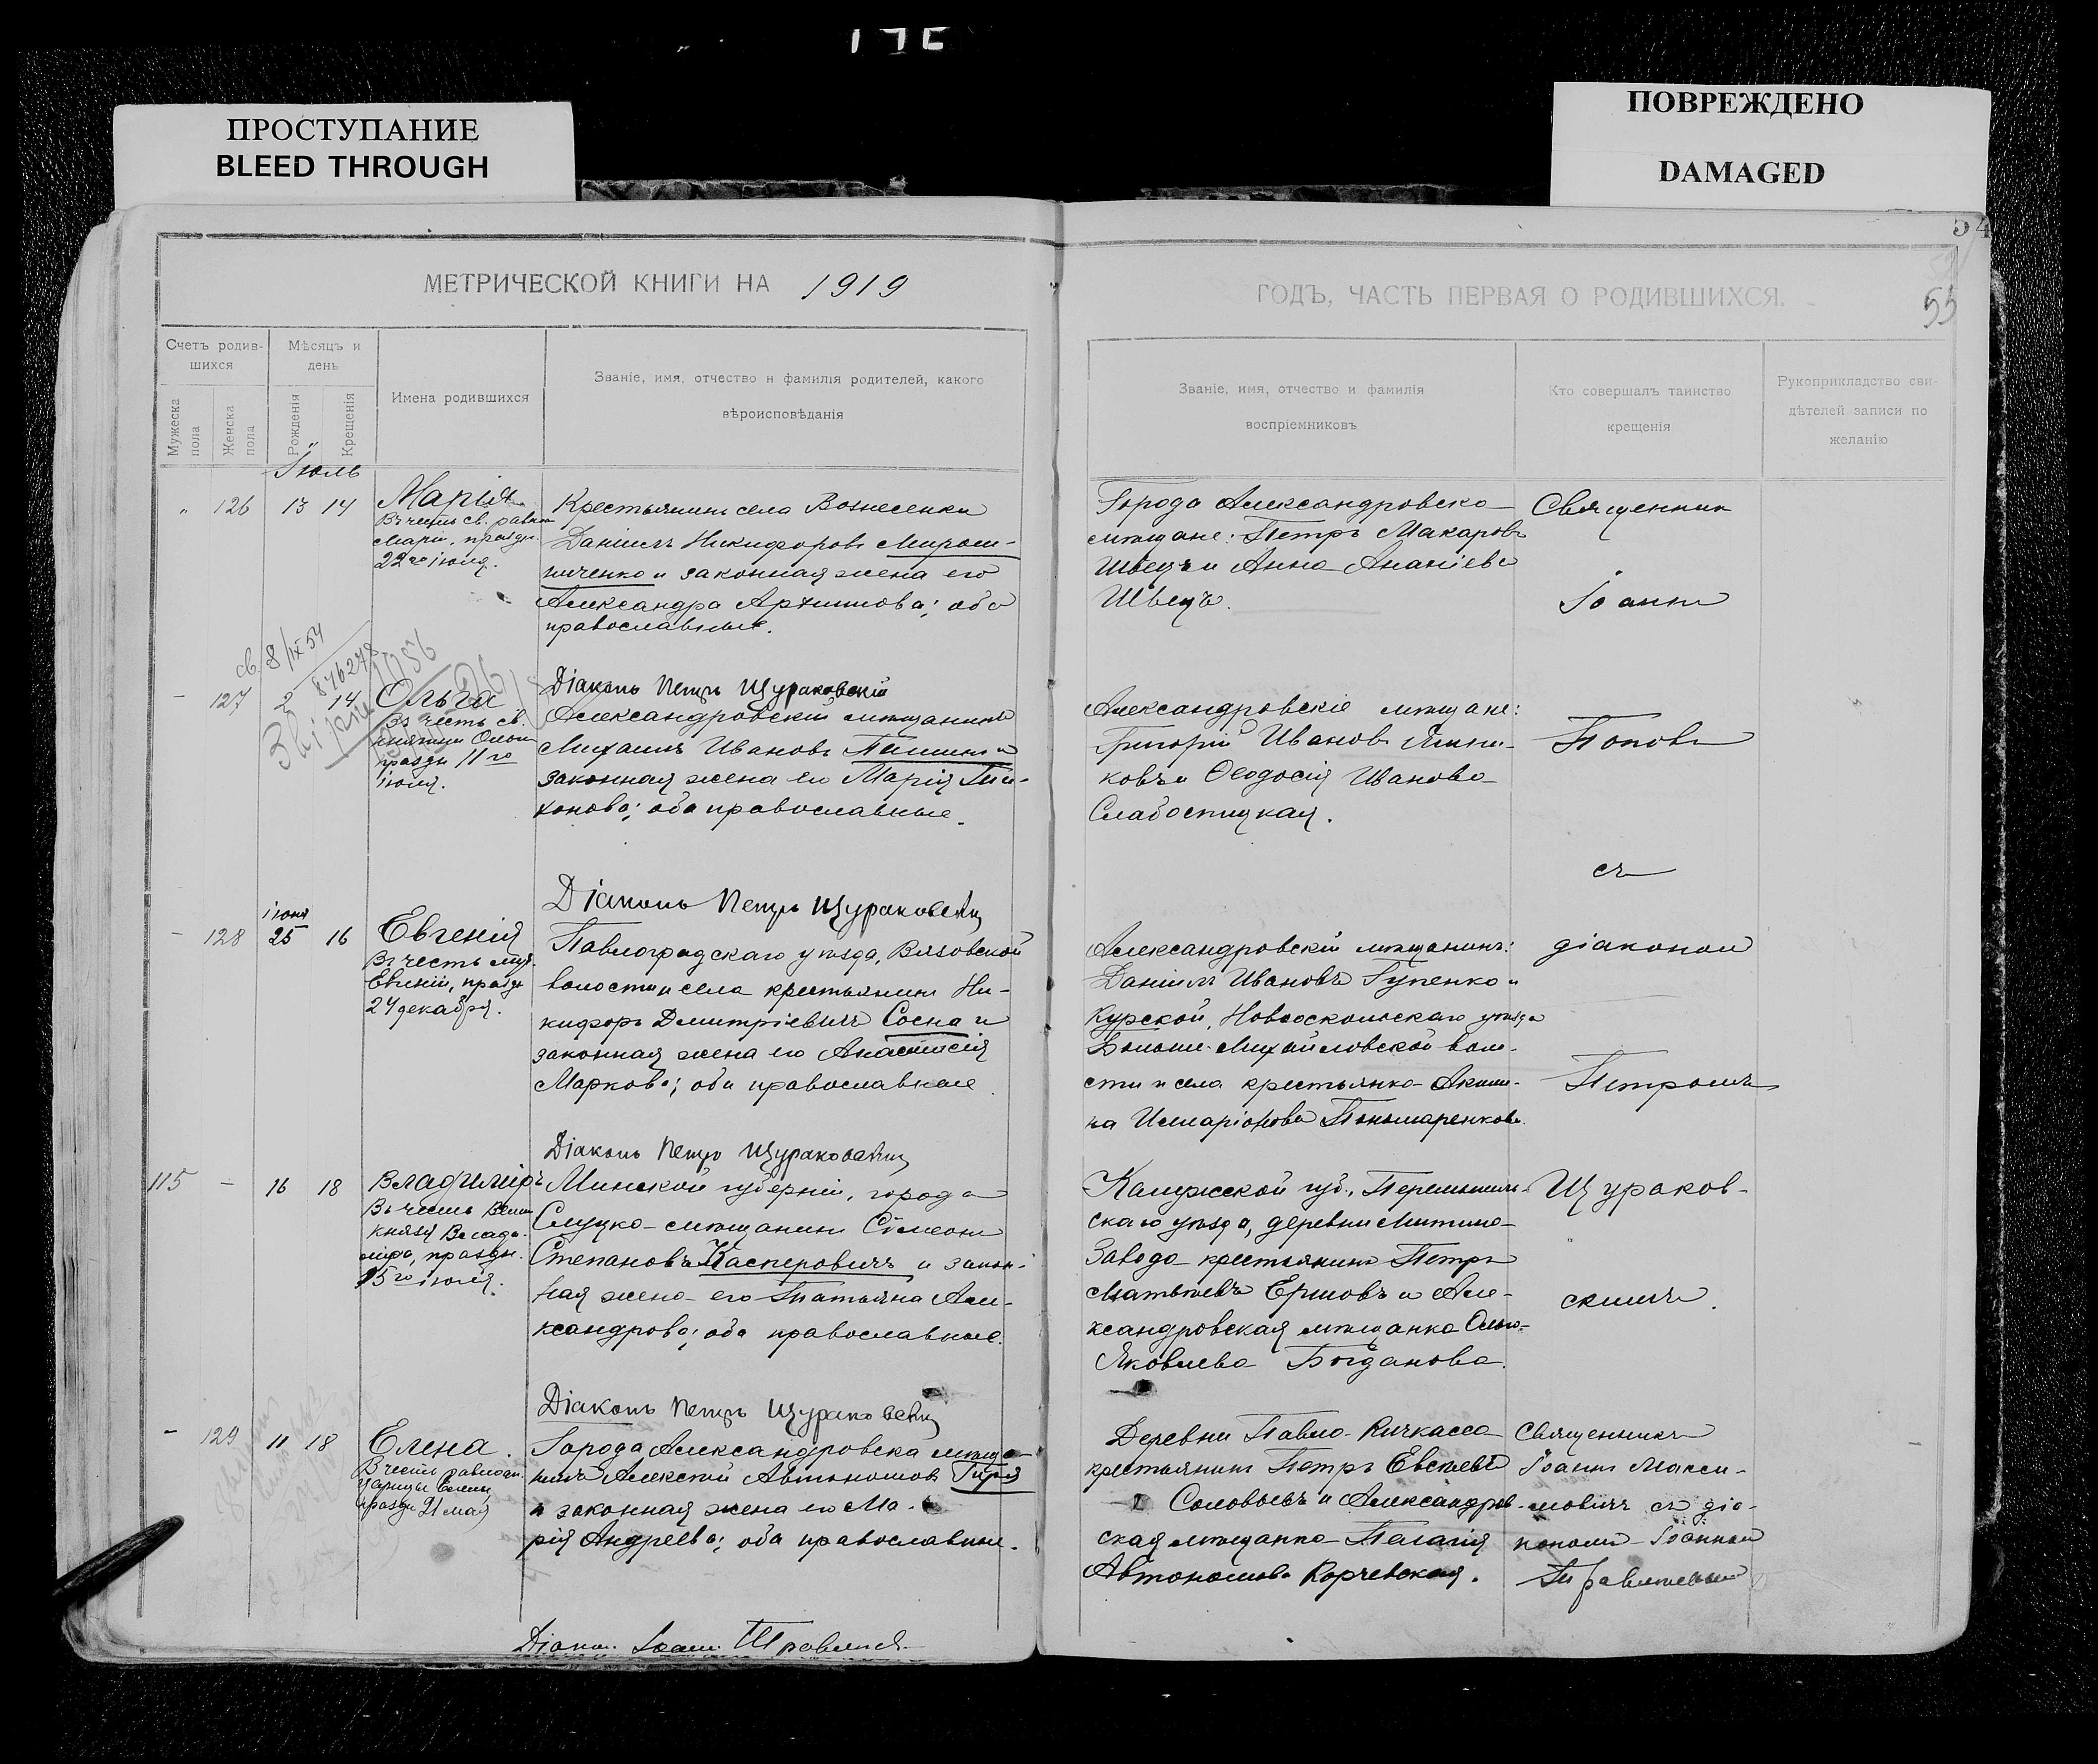 ПРОСТУПАНИЕ
BLEED THROUGH
ПОВРЕЖДЕНО
DAMAGED
54
55
МЕТРИЧЕСКОЙ КНИГИ НА 1919
ГОДЪ, ЧАСТЬ ПЕРВАЯ О РОДИВШИХСЯ.
Счетъ родив-
шихся
Мужеска
пола
Женска
пола
Мѣсяцъ и
день
Рожденія
Крещенія
Имена родившихся
Званіе, имя, отчество и фамилія родителей, какого
вѣроисповѣданія
Званіе, имя, отчество и фамилія
воспріемниковъ
Кто совершалъ таинство
крещенія
Рукоприкладство сви-
дѣтелей записи по
желанію
Іюль
" 126 13 14
Марія
Въ честь св. равноап
Маріи, праздн.
22го іюля.
Крестьянинъ села Вознесенки
Даніилъ Никифоровъ Мирош-
ниченко и законная жена его
Александра Архипова; оба
православные.
Діаконъ Петръ Щураковскій
Города Александровска
мѣщане: Петръ Макаровъ
Швецъ и Анна Ананіева
Швецъ.
Священникъ
Іоаннъ
св. 8/IX 54
876278
- 127 2 14
Ольга
Въ честь св.
княгини Ольги
праздн 11го
іюля.
Александровскій мѣщанинъ
Михаилъ Ивановъ и
законная жена его Марія Ти-
хонова; оба православные.
Діаконъ Петръ Щураковскій
Александровскіе мѣщане:
Григорій Ивановъ
ковъ и Ѳеодосія Иванова
Слабоспицкая.
Поповъ
съ
іюня
- 128 25 16
Евгенія
Въ честь муч.
Евгеніи, праздн
24 декабря.
Павлоградскаго уѣзда, Вязовской
волости и села крестьянинъ Ни-
кифоръ Димитріевичъ Сосна и
законная жена его Анастасія
Маркова; оба православные
Діаконъ Петръ Щураковскій
Александровскій мѣщанинъ:
Даніилъ Ивановъ Гупенко и
Курской, Новооскольскаго уѣзда
Больше-Михайловской воло-
сти и села крестьянка Акили-
на Илларіонова Пономаренкова.
діакономъ
Петромъ
115 - 16 18
Владиміръ
Въ честь Велик
князя Влади-
міра, праздн.
15го іюля.
Минской губерніи, города
Слуцка мѣщанинъ Сѵмеонъ
Степановъ Касперовичъ и закон-
ная жена его Татьяна Але-
ксандрова; оба православные.
Діаконъ Петръ Щураковскій
Калужской губ., Перемышль-
скаго уѣзда, деревни Митина
Завода крестьянинъ Петръ
Матвѣевъ Ершовъ и Але-
ксандровская мѣщанка Ольга
Яковлева Богданова.
Щураков-
скимъ.
- 129 11 18
Елена.
В честь равноап.
царицы Елены
праздн 21 мая
Города Александровска мѣща-
нинъ Алексѣй Автономовъ Гиря
и законная жена его Ма-
рія Андреева; оба православные.
Діаконъ Іоаннъ
Деревни Павло-Кичкасса
крестьянинъ Петръ Евсѣевъ
Соловьевъ и Александров-
ская мѣщанка Пелагія
Автономова Корчевская.
Священникъ
Іоаннъ Макси-
мовичъ съ діа-
кономъ Іоанномъ